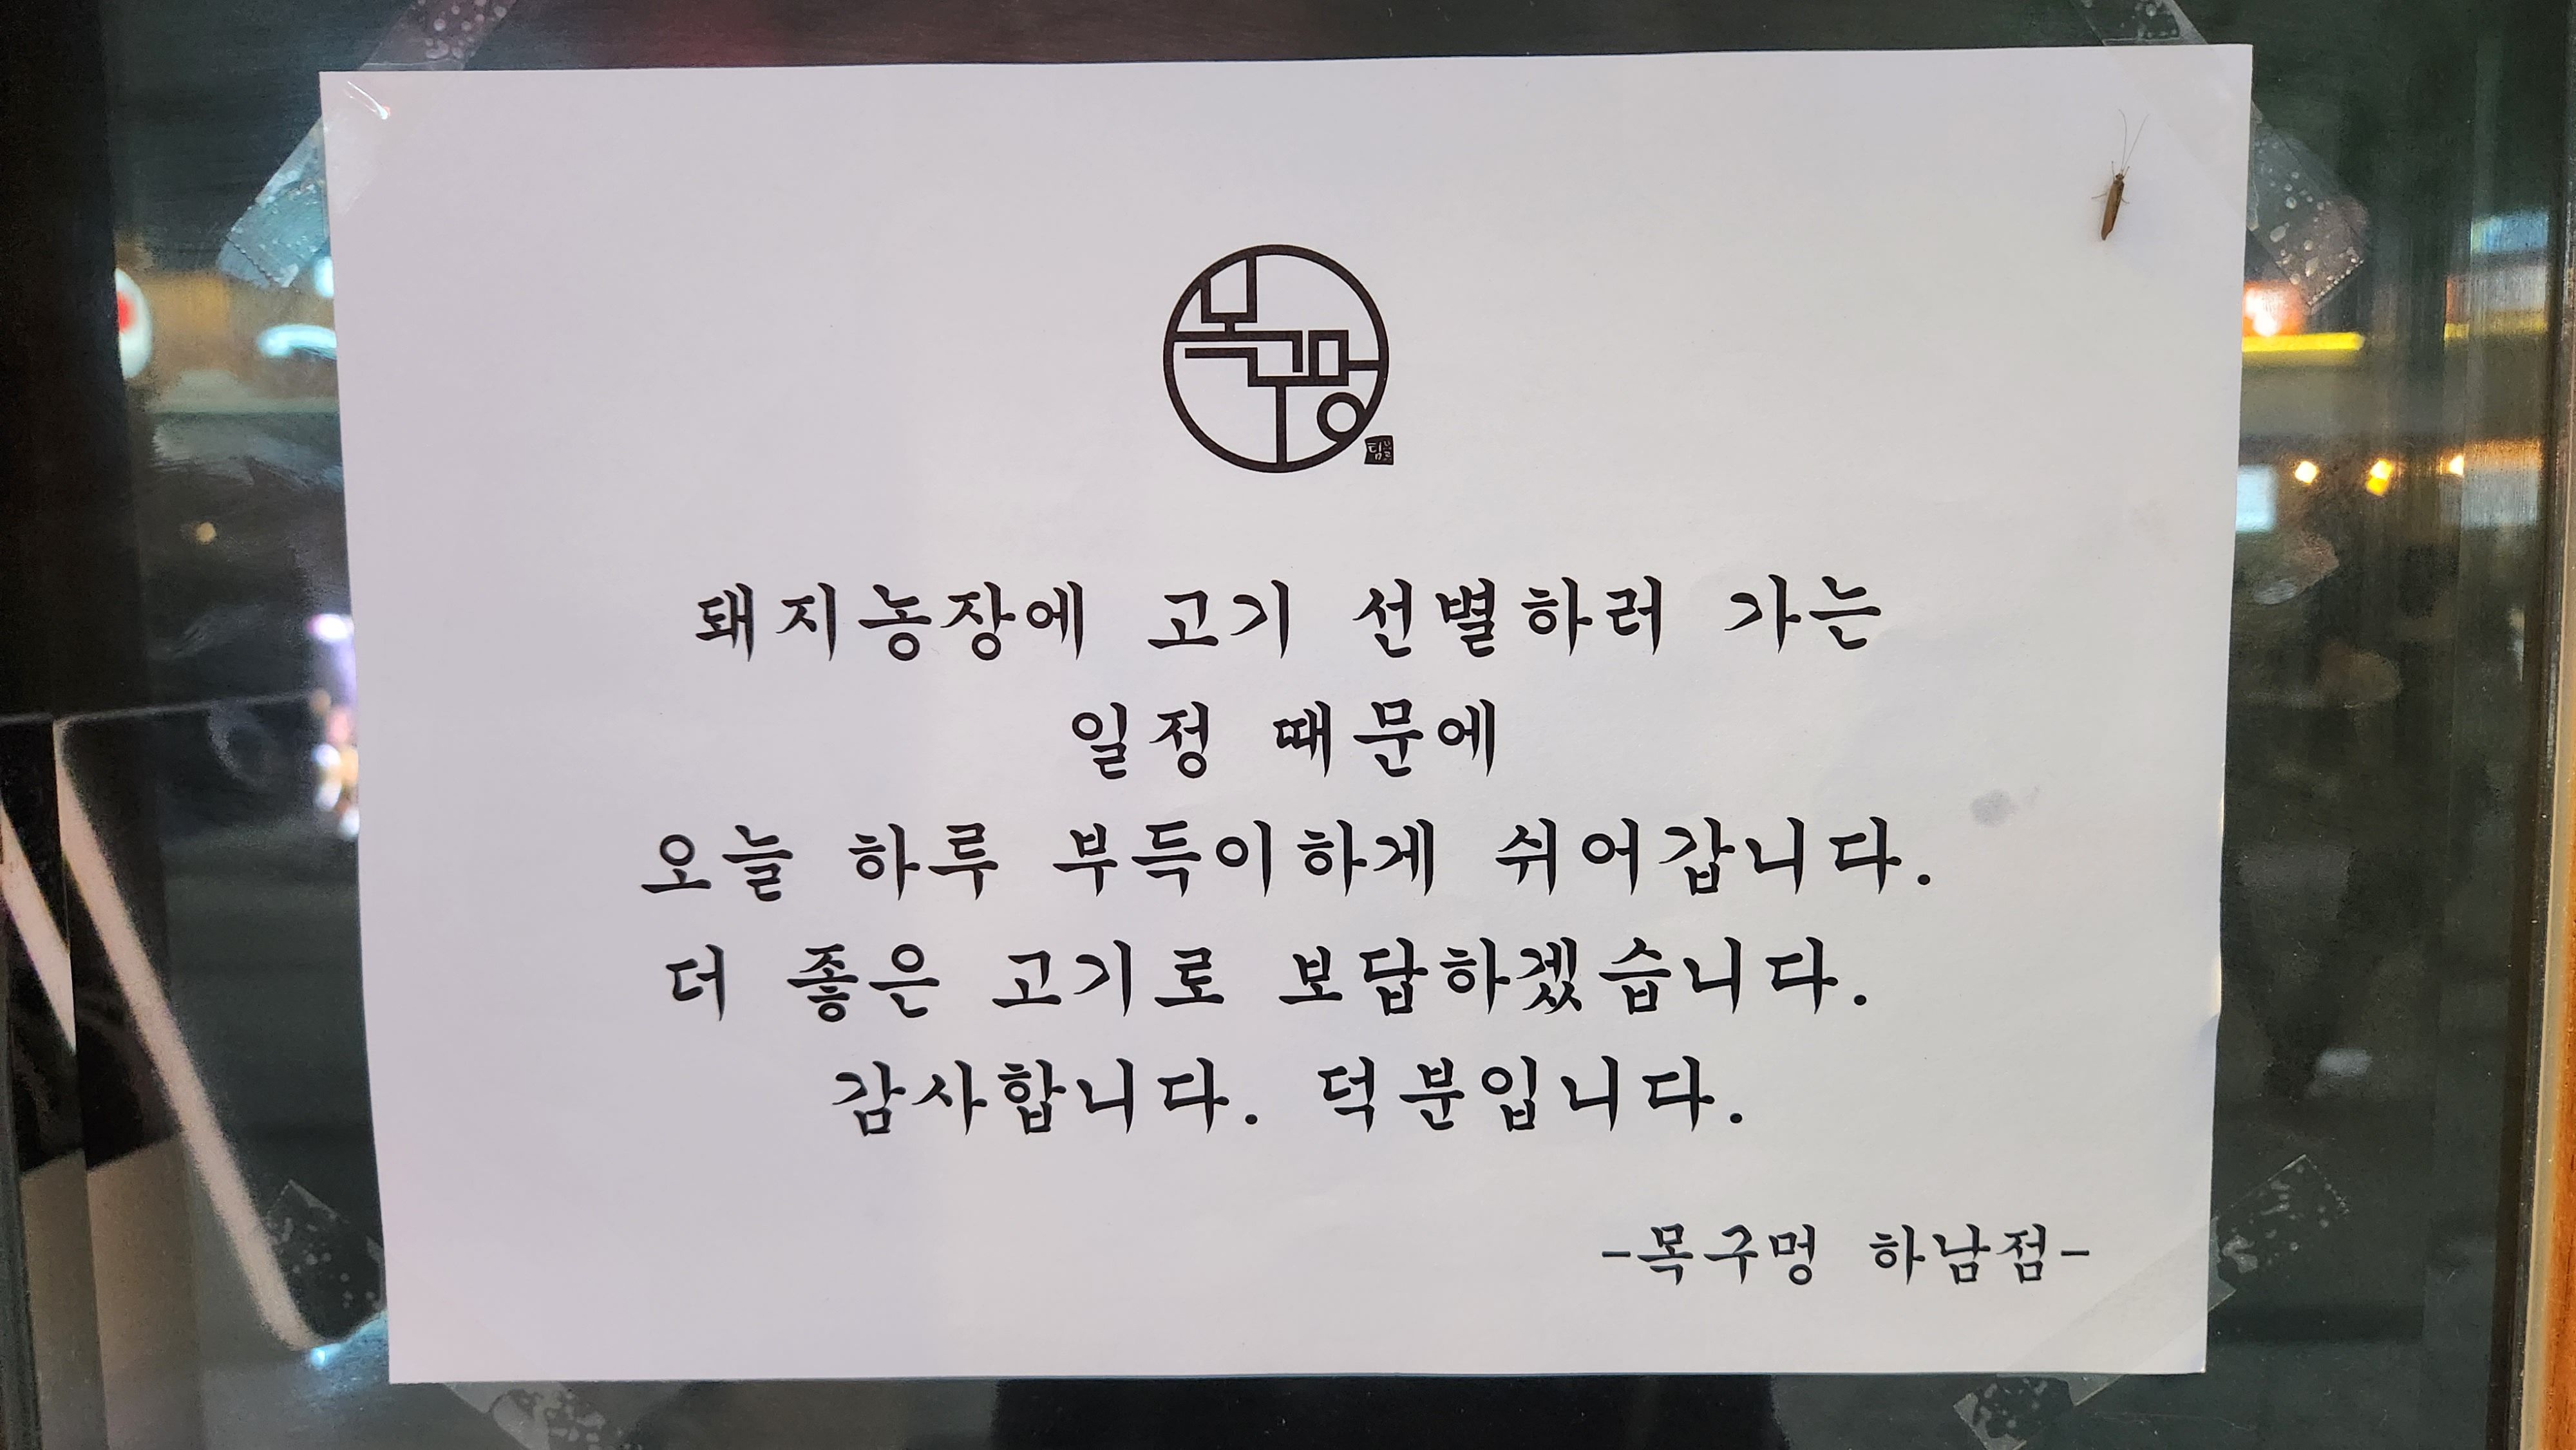 목구멍
돼지농장에 고기 선별하러 가는
일정 때문에
오늘 하루 부득이하게 쉬어갑니다.
더 좋은 고기로 보답하겠습니다.
감사합니다. 덕분입니다.
-목구멍 하남점-